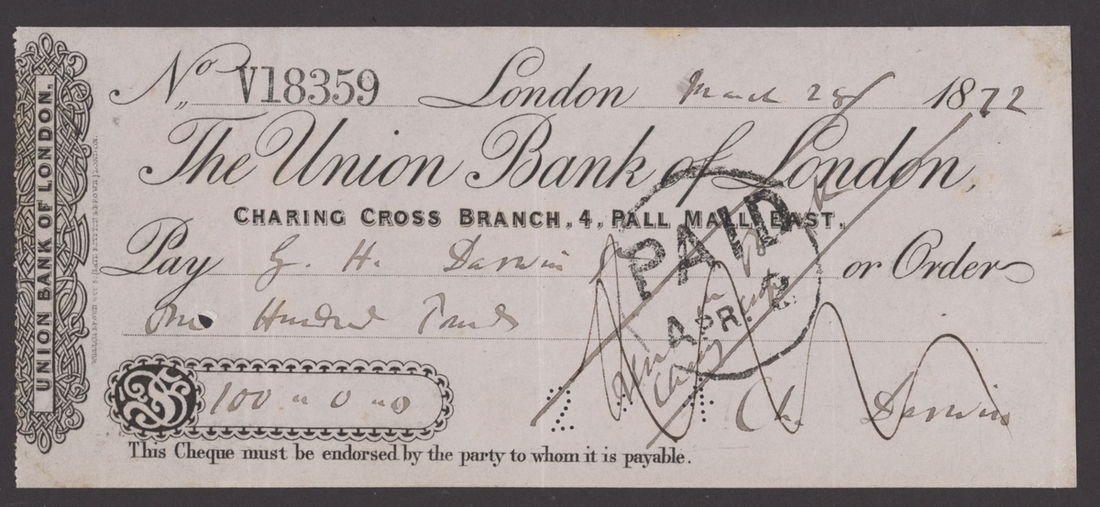 UNION BANK OF LONDON.
No V18359 London March 28 1872
The Union Bank of London,
CHARING CROSS BRANCH, 4, PALL MALL EAST.
Pay G. H. Darwin or Order
One Hundred Pounds
PAID
APR.
100 " 0 " 0
Ch. Darwin
This Cheque must be endorsed by the party to whom it is payable.